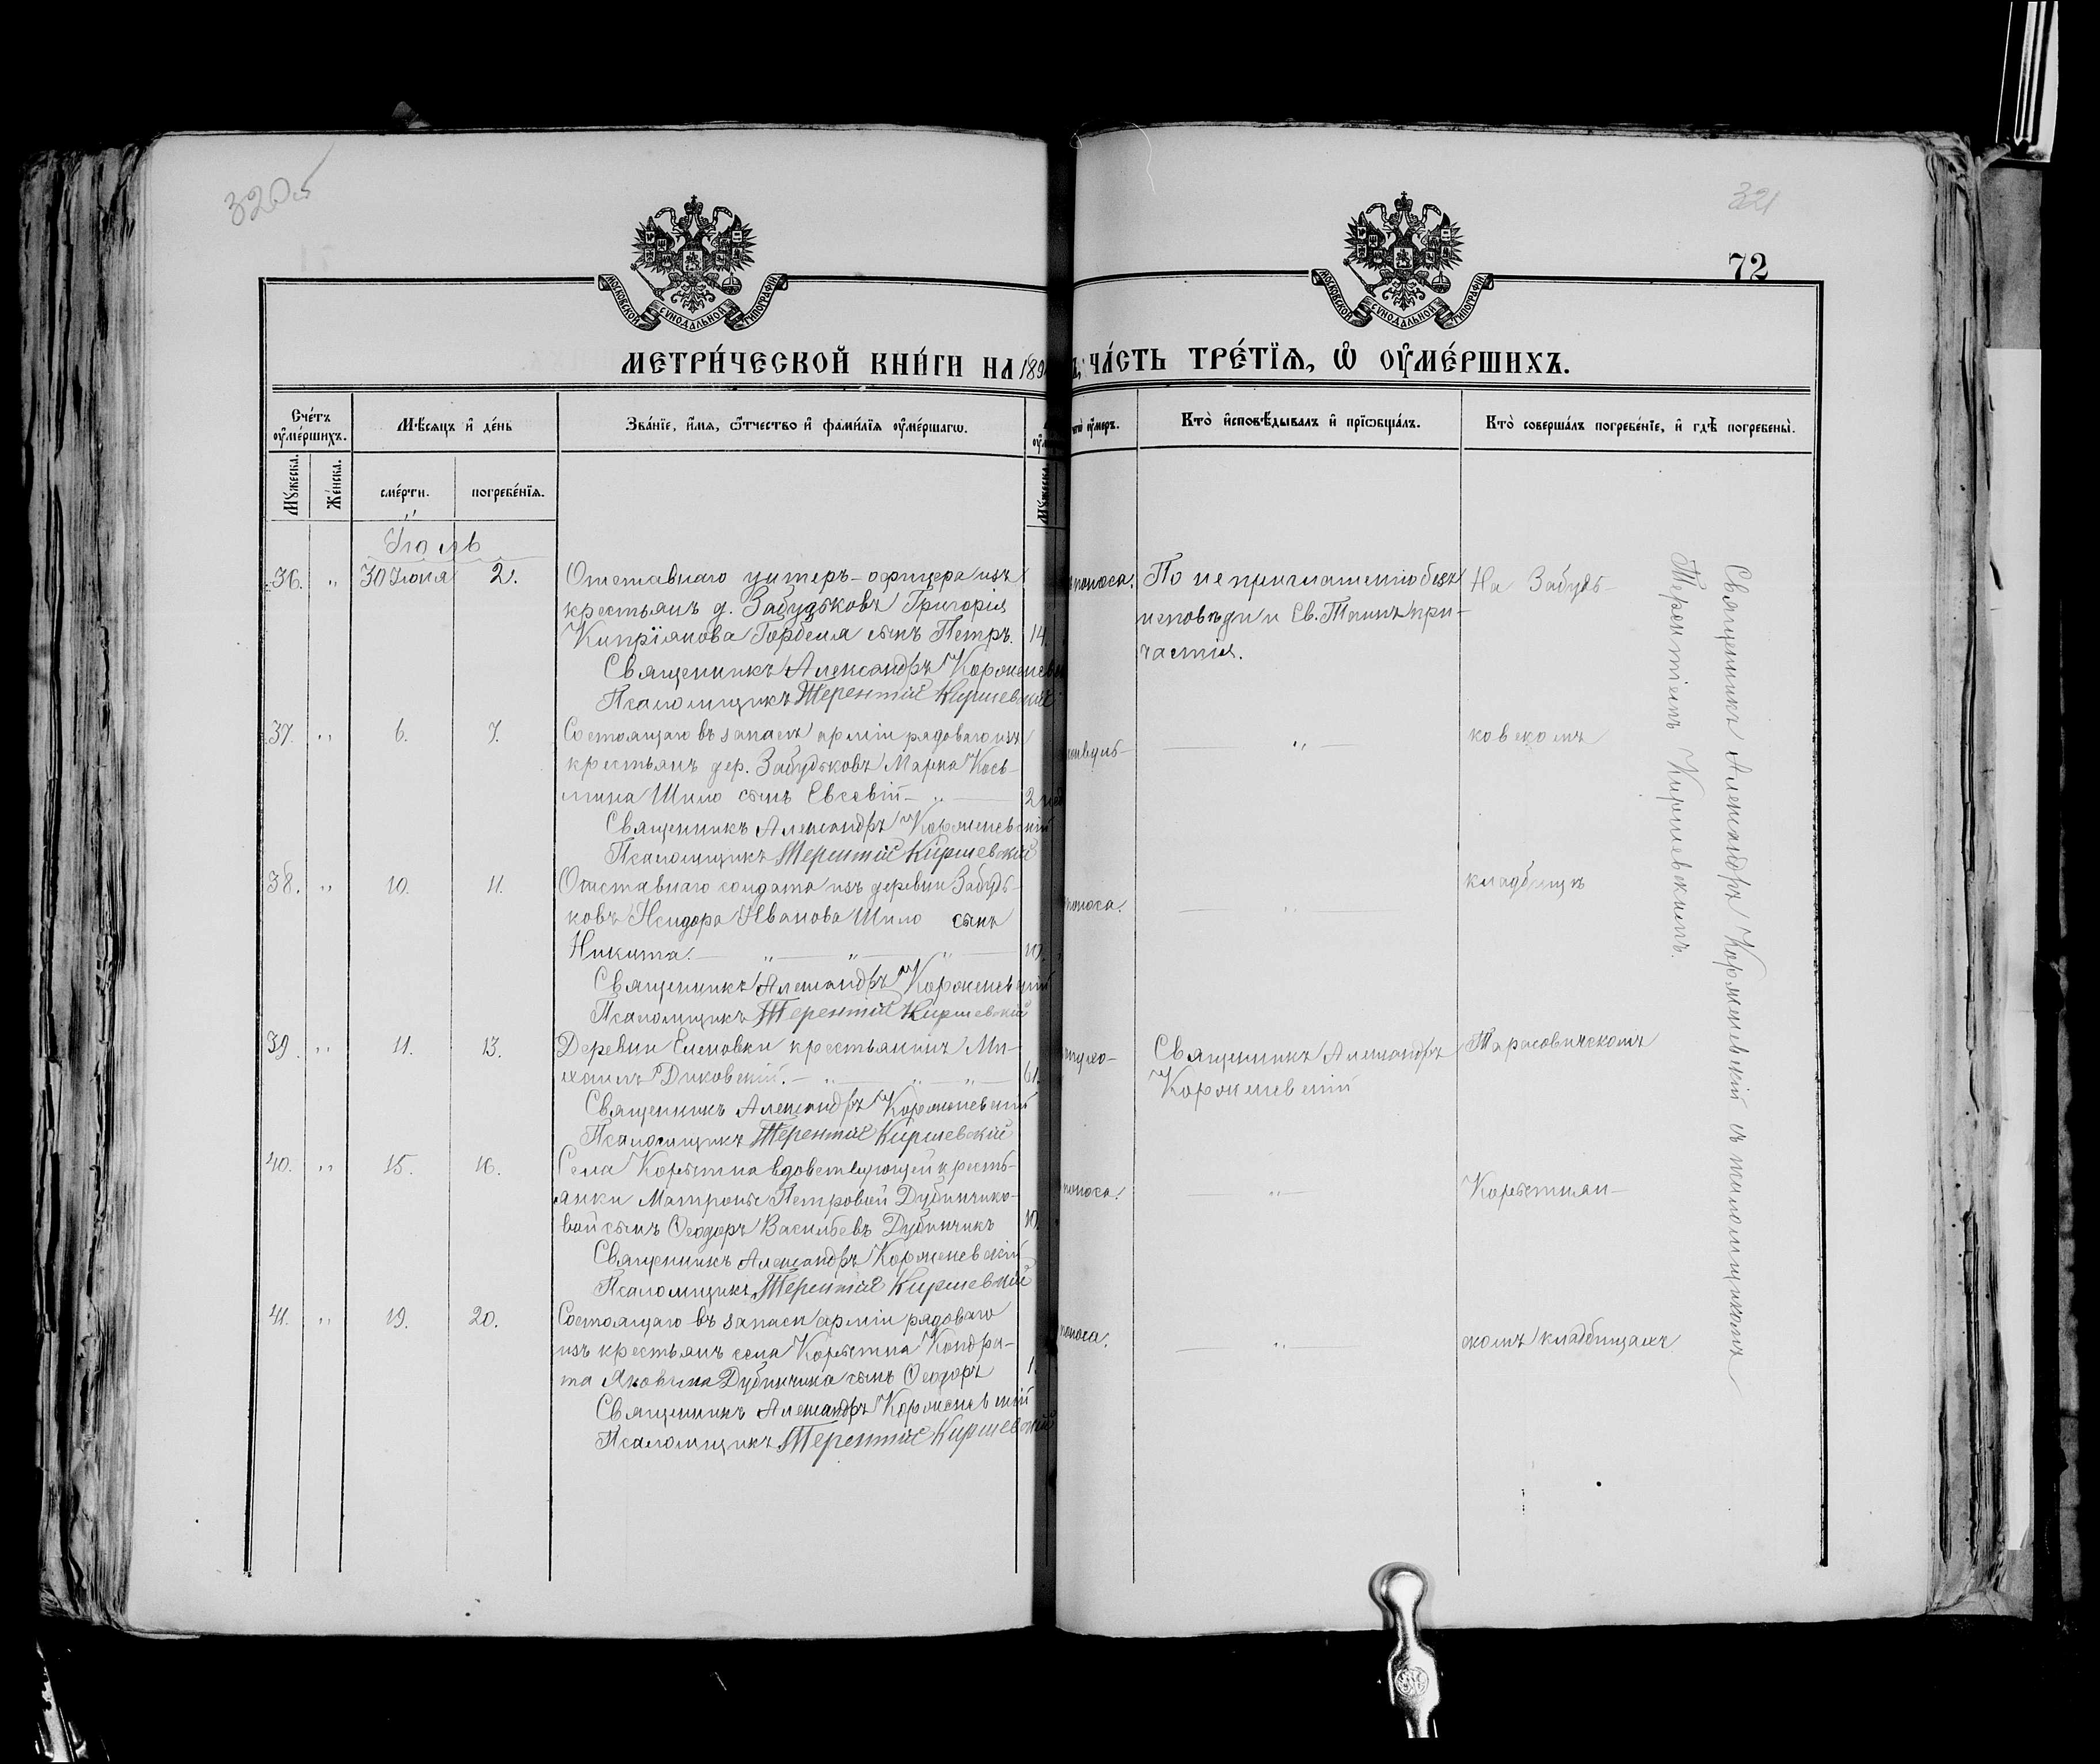 320 об
321
72
МОСКОВСКОЙ СѴНОДАЛЬНОЙ ТИПОГРАФІИ
МОСКОВСКОЙ СѴНОДАЛЬНОЙ ТИПОГРАФІИ
МЕТРИ́ЧЕСКОЙ КНИ́ГИ НА 189
ЧА́СТЬ ТРЕ́ТЇѦ, Ѡ҆ ОУ҆МЕ́РШИХЪ.
Сче́тъ оу҆ме́ршихъ.
Мѣ́сѧцъ и҆ де́нь
Зва́нїе, и҆́мѧ, ѻ҆́тчество и҆ фами́лїѧ оу҆ме́ршагѡ.
оу҆ме́ръ.
Кто̀ и҆сповѣ́дывалъ и҆ прїѡбща́лъ.
Кто̀ соверша́лъ погребе́нїе, и҆ гдѣ̀ погребены̀.
Мꙋ́жеска.
Же́нска.
сме́рти.
погребе́нїѧ.
Мꙋ́жеска
Іюль
36. " 30 Іюня 2. Отставнаго унтеръ-офицера изъ
крестьянъ д. Забудьковъ Григорія
Кипріянова Гордея сынъ Петръ. 14.
Священникъ Александръ Корженевскій
Псаломщикъ Терентій Киршевскій
поноса. По не приглашенію безъ
исповѣди и Св. Таинъ при-
частія.
На Забудь-
37. " 6. 7. Состоящаго въ запасѣ арміи рядоваго изъ
крестьянъ дер. Забудьковъ Марка Кось-
мина Шило сынъ Евсевій - " - 2 нед
Священникъ Александръ Корженевскій
Псаломщикъ Терентій Киршевскій
— " —
ковскомъ
38. " 10. 11. Отставнаго солдата изъ деревни Забудь-
ковъ Исидора Иванова Шило сынъ
Никита. — " — " — " — 10.
Священникъ Александръ Корженевскій
Псаломщикъ Терентій Киршевскій
поноса. — " —
кладбищѣ
39. " 11. 13. Деревни Еленовки крестьянинъ Ми-
хаилъ Диковскій. — " — " — " — 61.
Священникъ Александръ Корженевскій
Псаломщикъ Терентій Киршевскій
Священникъ Александръ
Корженевскій
Тарасовичскомъ
40. " 15. 16. Села Корѣтна вдовствующей кресть-
янки Матроны Петровой Дубинчико-
вой сынъ Ѳеодоръ Васильевъ Дубинчикъ 10.
Священникъ Александръ Корженевскій
Псаломщикъ Терентій Киршевскій
поноса. — " —
Корѣтнян-
41. " 19. 20. Состоящаго въ запасѣ арміи рядоваго
изъ крестьянъ села Корѣтна Кондра-
та Яковлева Дубинчика сынъ Ѳеодоръ 1.
Священникъ Александръ Корженевскій
Псаломщикъ Терентій Киршевскій
поноса. — " —
скомъ кладбищахъ
Священникъ Александръ Корженевскій съ псаломщикомъ
Терентіемъ Киршевскимъ.